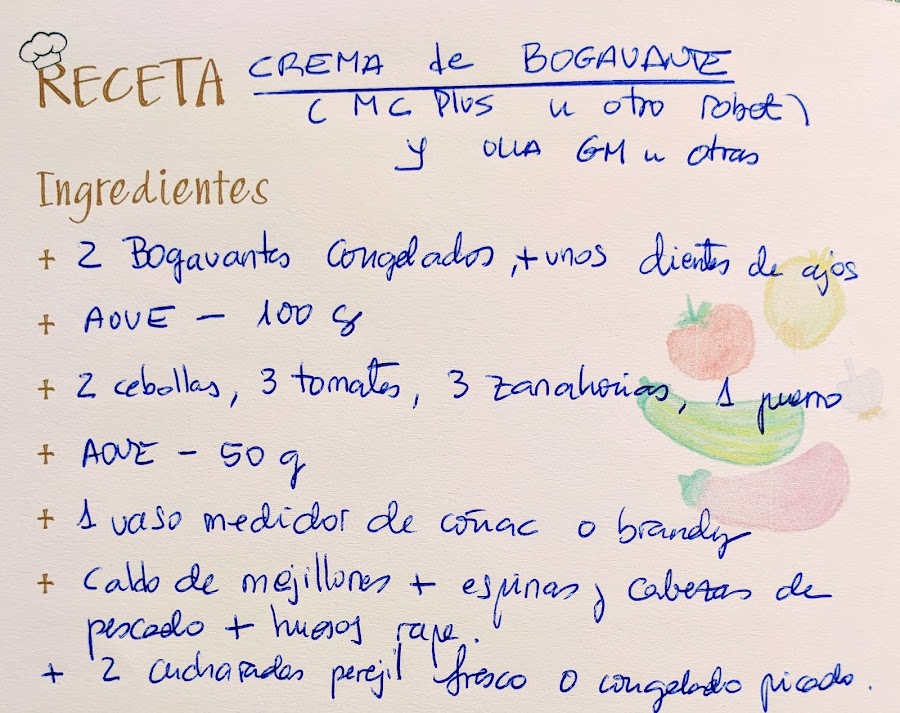 RECETA CREMA de BOGAVANTE
(MC Plus u otro robot)
y OLLA GM u otras
Ingredientes
+ 2 Bogavantes congelados, + unos dientes de ajos
+ AOVE - 100 g
+ 2 cebollas, 3 tomates, 3 zanahorias, 1 puerro
+ AOVE - 50 g
+ 1 vaso medidor de coñac o brandy
+ Caldo de mejillones + espinas y cabezas de
pescado + huesos rape.
+ 2 cucharadas perejil fresco o congelado picado.